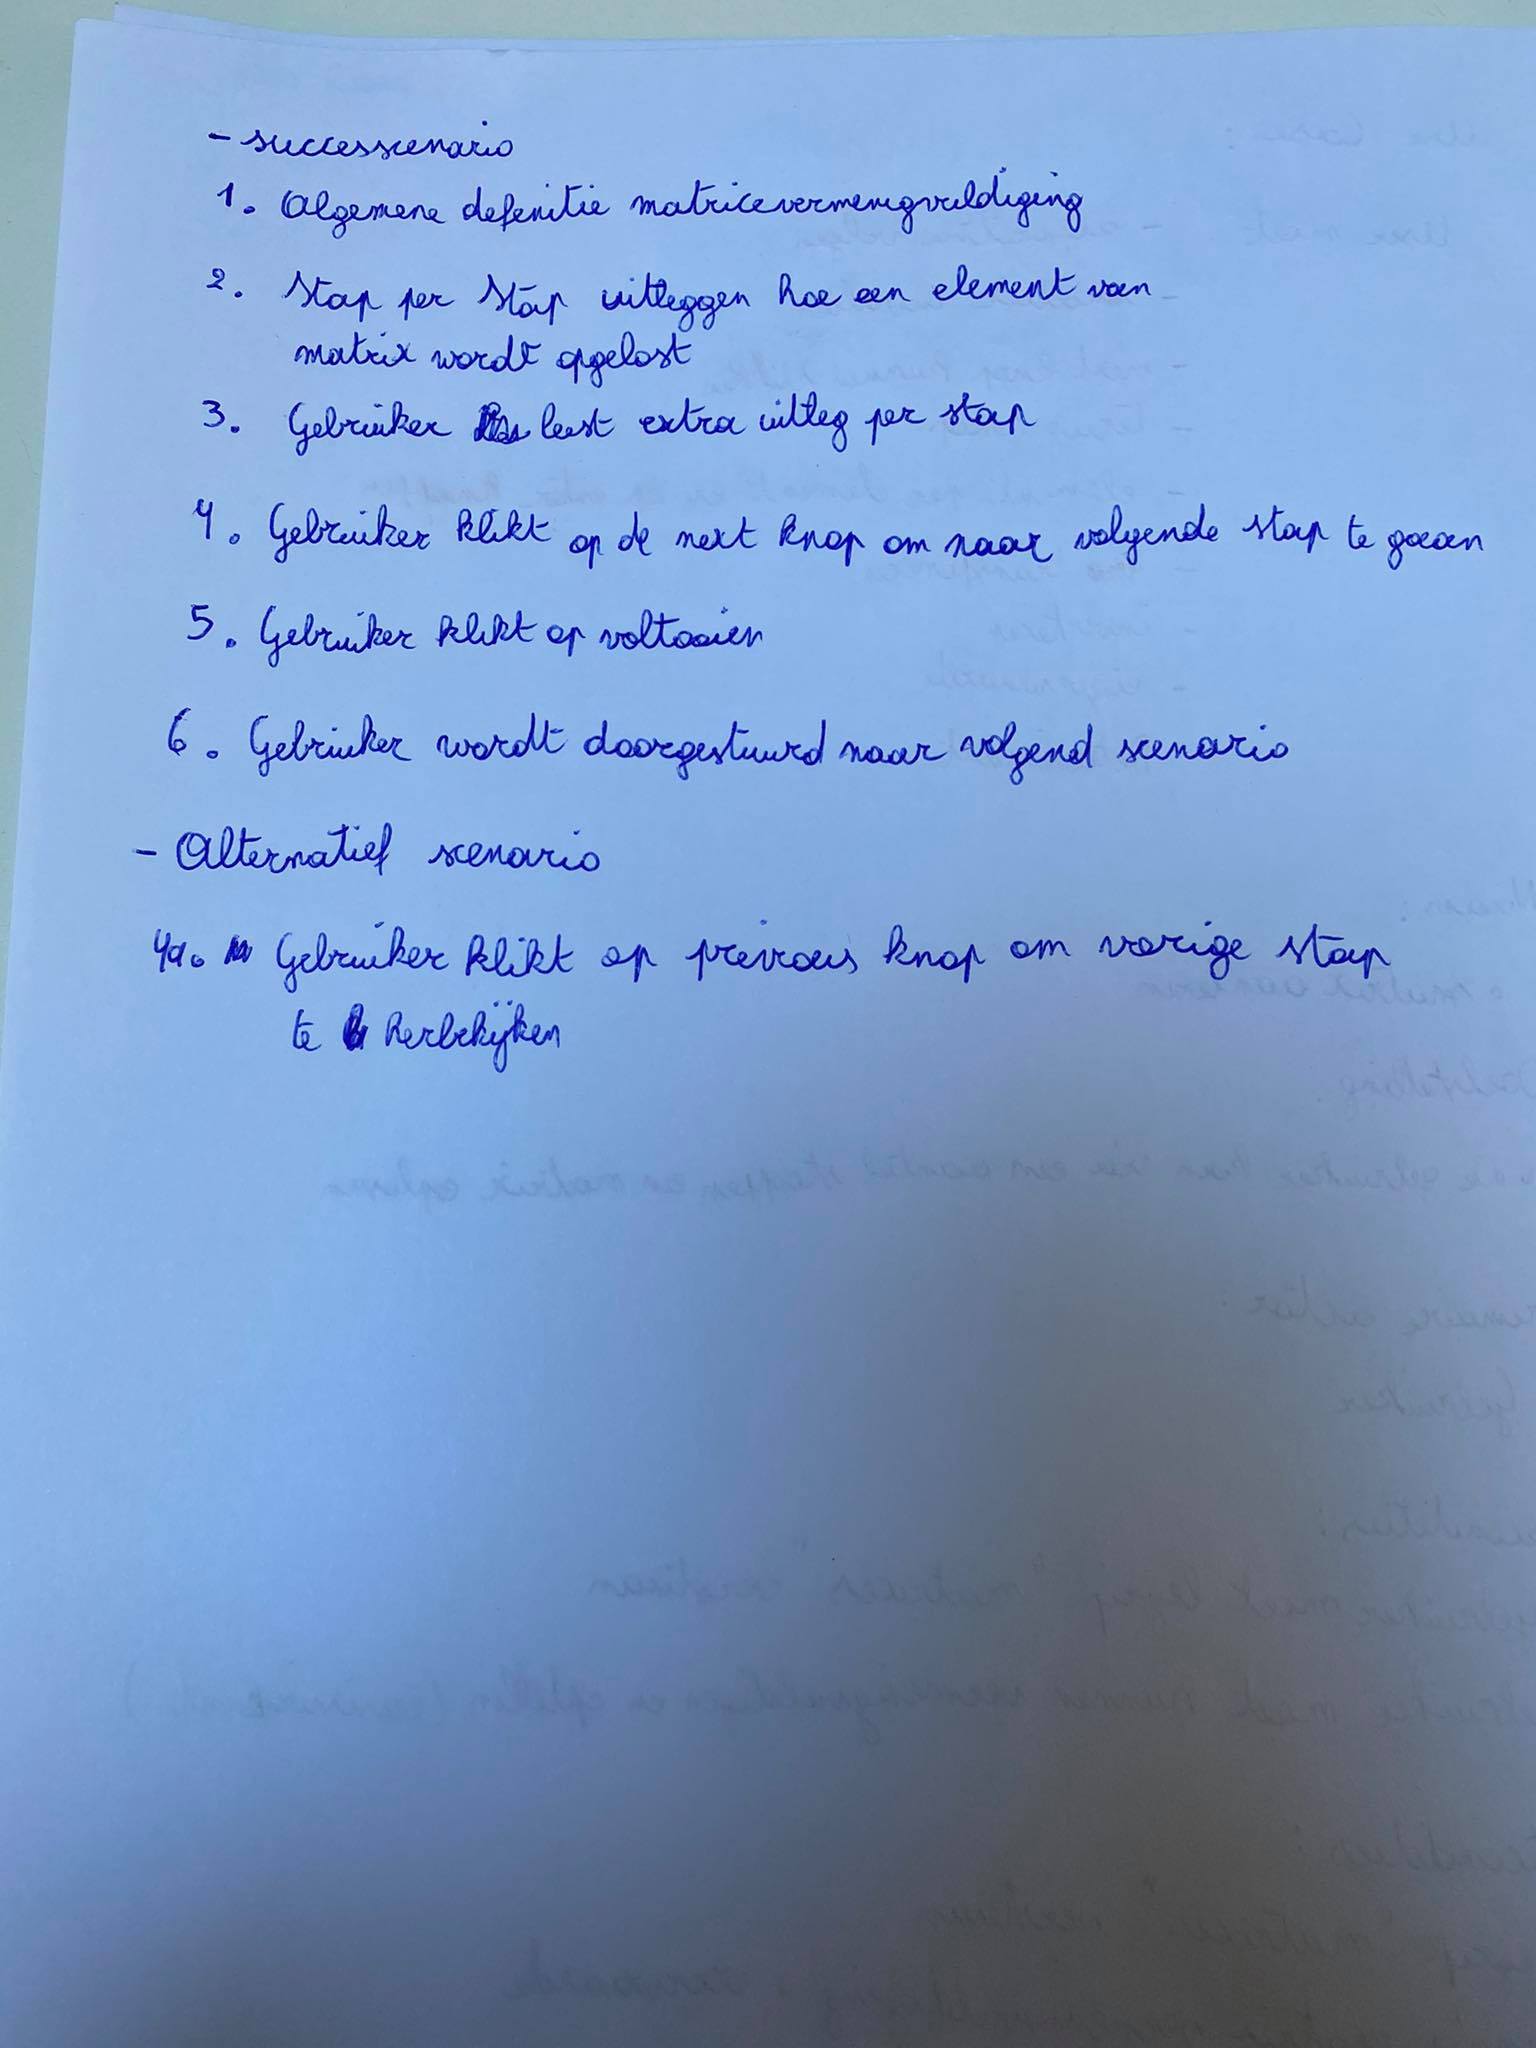 - successcenario
1. Algemene defenitie matricevermenigvuldiging
2. Stap per stap uitleggen hoe een element van
matrix wordt opgelost
3. Gebruiker leest extra uitleg per stap
4. Gebruiker klikt op de next knop om naar volgende stap te gaan
5. Gebruiker klikt op voltooien
6. Gebruiker wordt doorgestuurd naar volgend scenario
- Alternatief scenario
4a. Gebruiker klikt op previous knop om vorige stap
te herbekijken